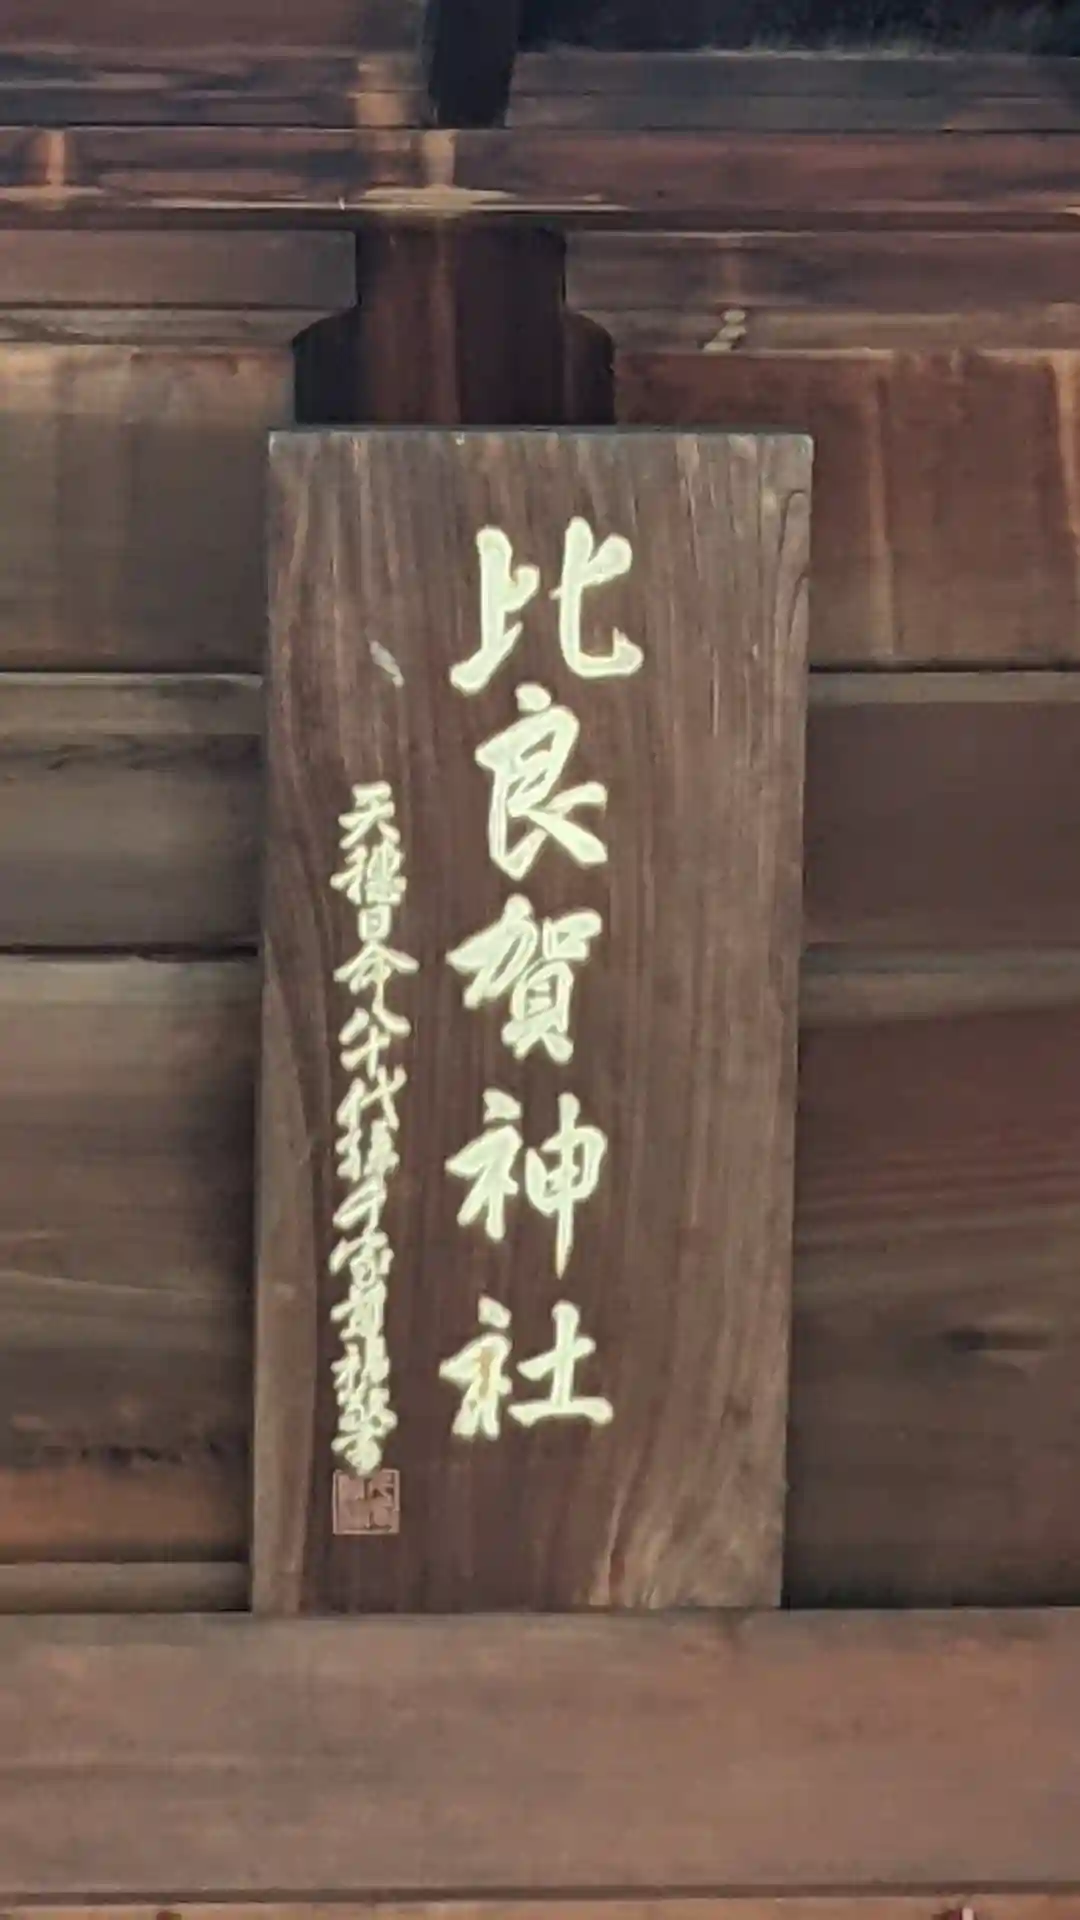 比良賀神社
天穂日命八十代孫千家尊祐書